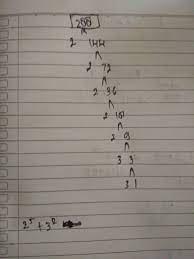 288
2 144
2 72
2 36
2 18
2 9
3 3
3 1
2⁵ + 3²